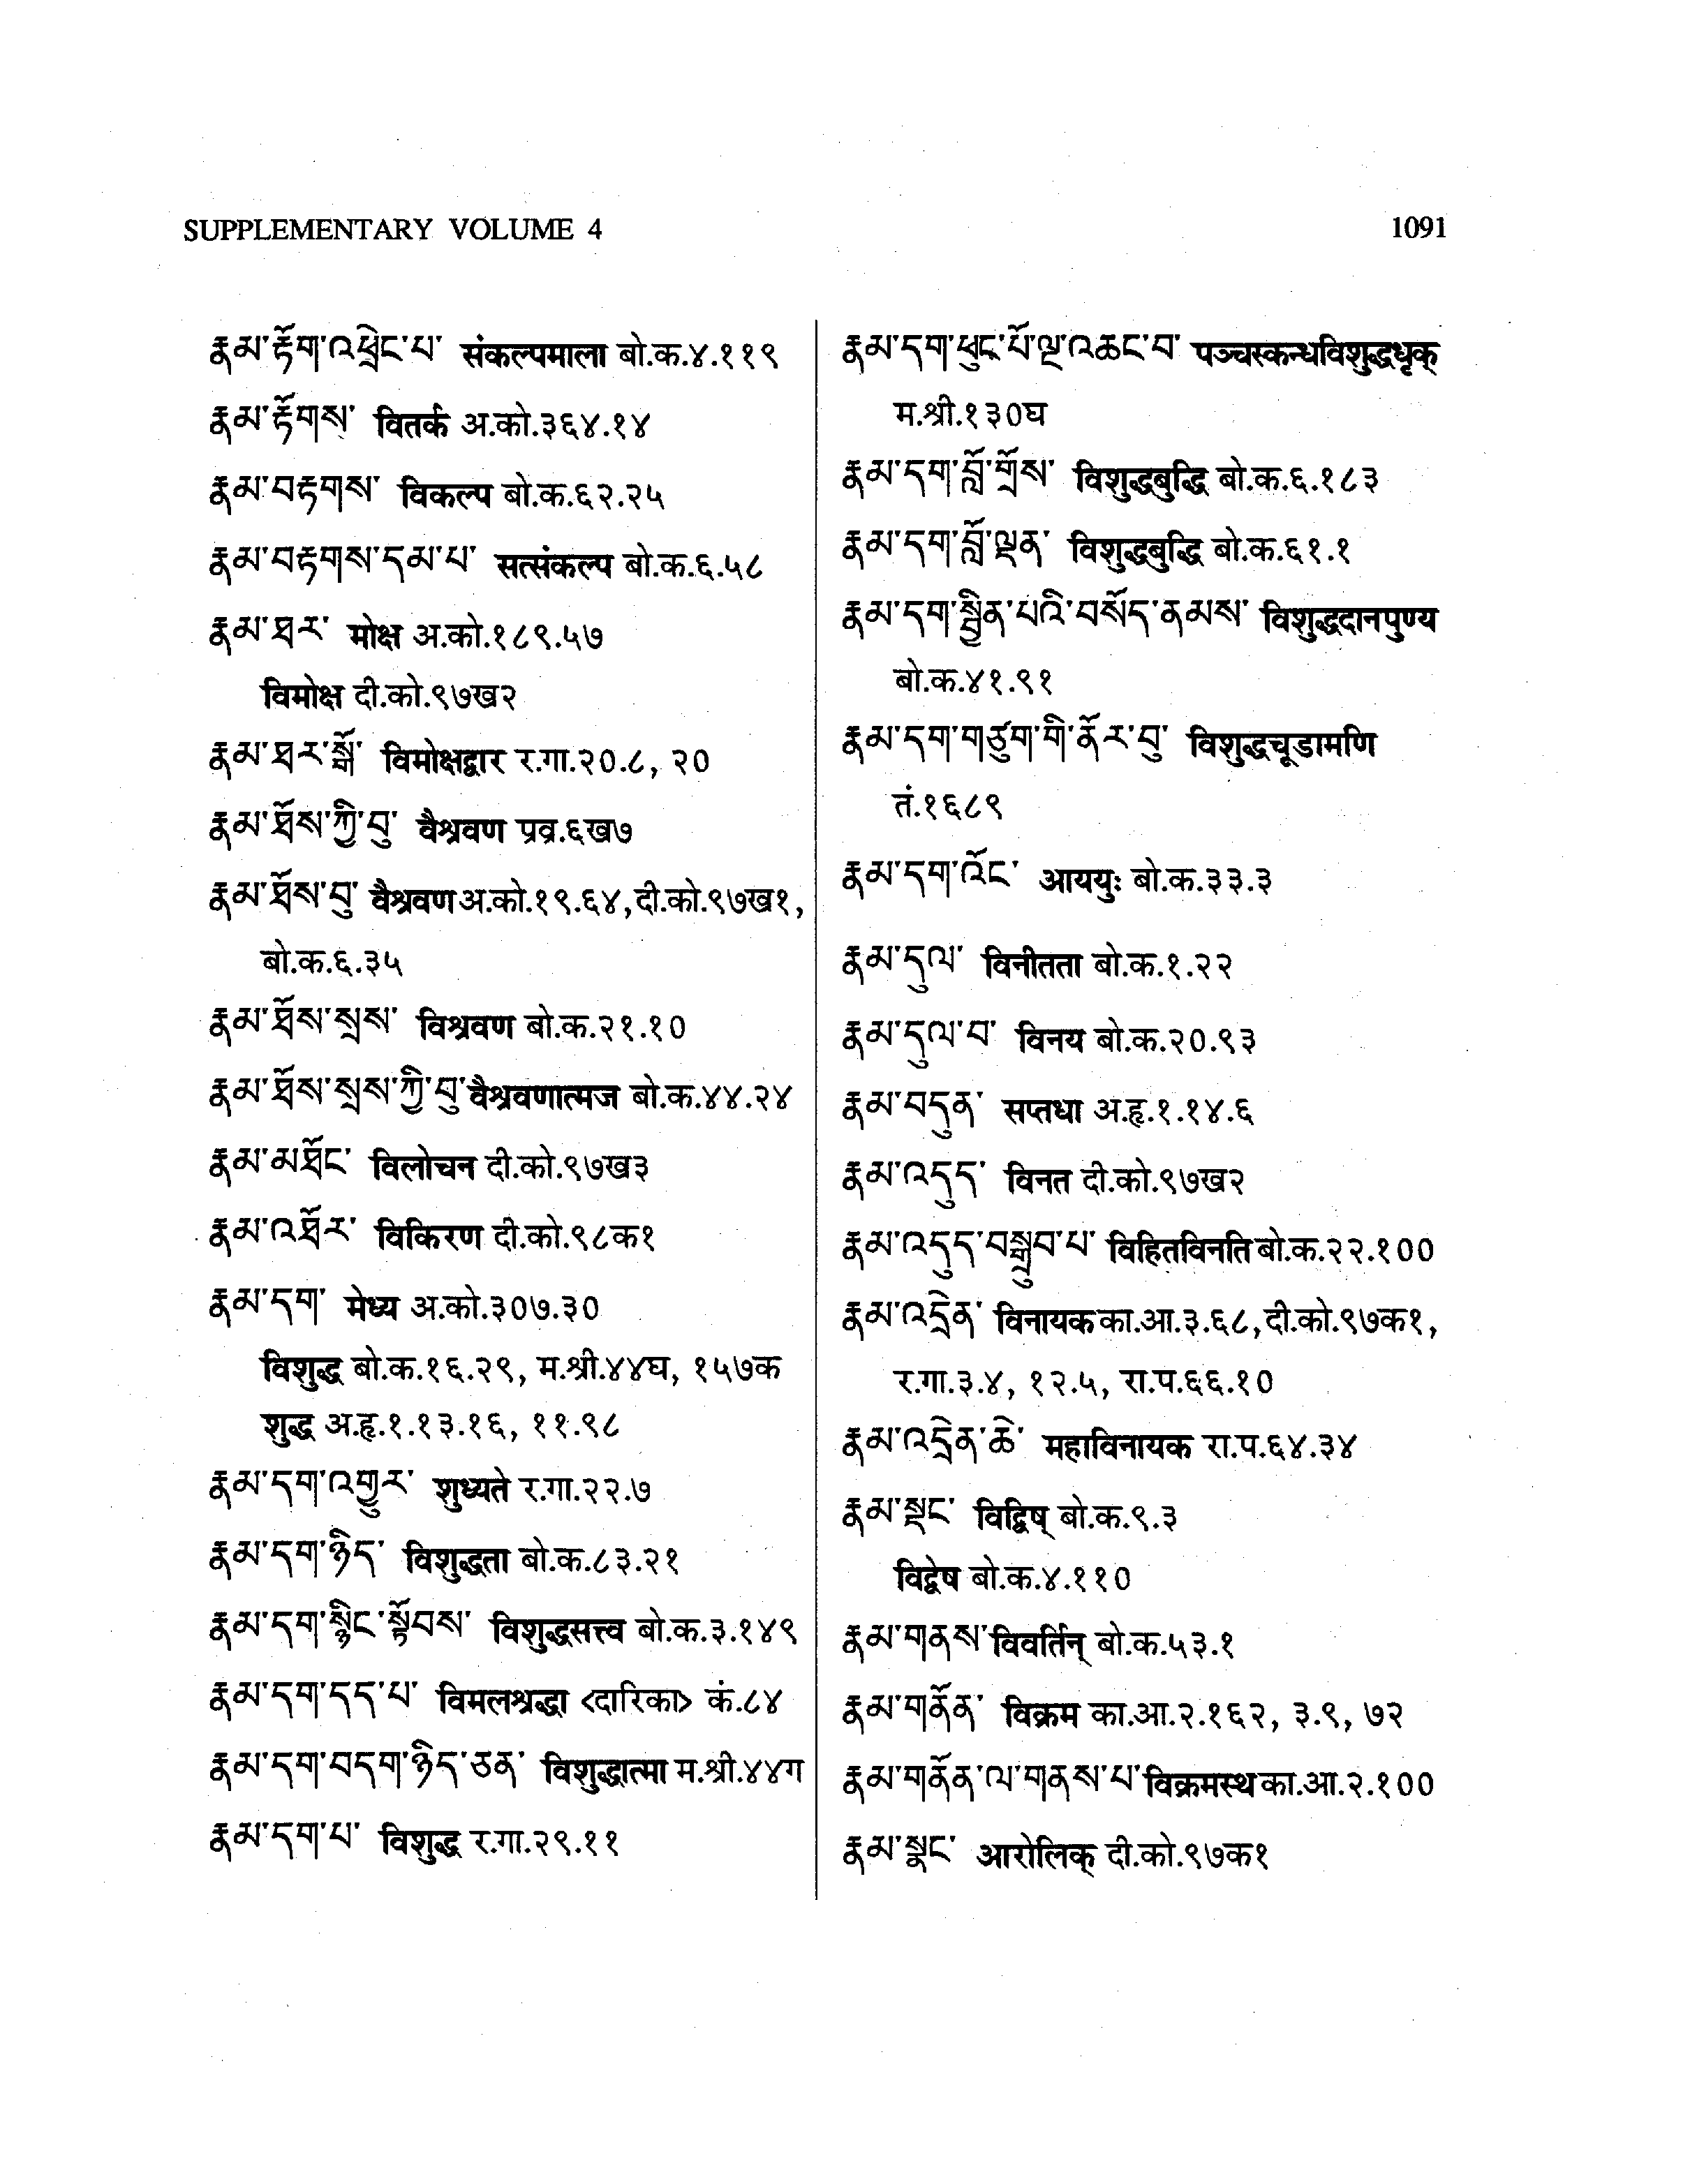 SUPPLEMENTARY VOLUME 4 1091
རྣམ་རྟོག་འཕྲེང་པ་ संकल्पमाला बो.क.४.११९
རྣམ་རྟོགས་ वितर्क अ.को.३६४.१४
རྣམ་བརྟགས་ विकल्प बो.क.६२.२५
རྣམ་བརྟགས་དམ་པ་ सत्संकल्प बो.क.६.५८
རྣམ་ཐར་ मोक्ष अ.को.१८९.५७
विमोक्ष दी.को.९७ख२
རྣམ་ཐར་སྒོ་ विमोक्षद्वार र.गा.२०.८, २०
རྣམ་ཐོས་ཀྱི་བུ་ वैश्रवण प्रव्र.६ख७
རྣམ་ཐོས་བུ་ वैश्रवण अ.को.१९.६४, दी.को.९७ख१,
बो.क.६.३५
རྣམ་ཐོས་སྲས་ विश्रवण बो.क.२१.१०
རྣམ་ཐོས་སྲས་ཀྱི་བུ་ वैश्रवणात्मज बो.क.४४.२४
རྣམ་མཐོང་ विलोचन दी.को.९७ख३
རྣམ་འཐོར་ विकिरण दी.को.९८क१
རྣམ་དག་ मेध्य अ.को.३०७.३०
विशुद्ध बो.क.१६.२९, म.श्री.४४घ, १५७क
शुद्ध अ.हृ.१.१३.१६, ११.९८
རྣམ་དག་འགྱུར་ शुध्यते र.गा.२२.७
རྣམ་དག་ཉིད་ विशुद्धता बो.क.८३.२१
རྣམ་དག་སྙིང་སྟོབས་ विशुद्धसत्त्व बो.क.३.१४९
རྣམ་དག་དད་པ་ विमलश्रद्धा <दारिका> कं.८४
རྣམ་དག་བདག་ཉིད་ཅན་ विशुद्धात्मा म.श्री.४४ग
རྣམ་དག་པ་ विशुद्ध र.गा.२९.११
རྣམ་དག་ཕུང་པོ་ལྔ་འཆང་བ་ पञ्चस्कन्धविशुद्धधृक्
म.श्री.१३०घ
རྣམ་དག་བློ་གྲོས་ विशुद्धबुद्धि बो.क.६.१८३
རྣམ་དག་བློ་ལྡན་ विशुद्धबुद्धि बो.क.६१.१
རྣམ་དག་སྦྱིན་པའི་བསོད་ནམས་ विशुद्धदानपुण्य
बो.क.४१.९१
རྣམ་དག་གཙུག་གི་ནོར་བུ་ विशुद्धचूडामणि
तं.१६८९
རྣམ་དག་འོང་ आययुः बो.क.३३.३
རྣམ་དུལ་ विनीतता बो.क.१.२२
རྣམ་དུལ་བ་ विनय बो.क.२०.९३
རྣམ་བདུན་ सप्तधा अ.हृ.१.१४.६
རྣམ་འདུད་ विनत दी.को.९७ख२
རྣམ་འདུད་བསྒྲུབ་པ་ विहितविनति बो.क.२२.१००
རྣམ་འདྲེན་ विनायक का.आ.३.६८, दी.को.९७क१,
र.गा.३.४, १२.५, रा.प.६६.१०
རྣམ་འདྲེན་ཆེ་ महाविनायक रा.प.६४.३४
རྣམ་སྡང་ विद्विष् बो.क.९.३
विद्वेष बो.क.४.११०
རྣམ་གནས་ विवर्तिन् बो.क.५३.१
རྣམ་གནོན་ विक्रम का.आ.२.१६२, ३.९, ७२
རྣམ་གནོན་ལ་གནས་པ་ विक्रमस्थ का.आ.२.१००
རྣམ་སྣང་ आरोलिक् दी.को.९७क१